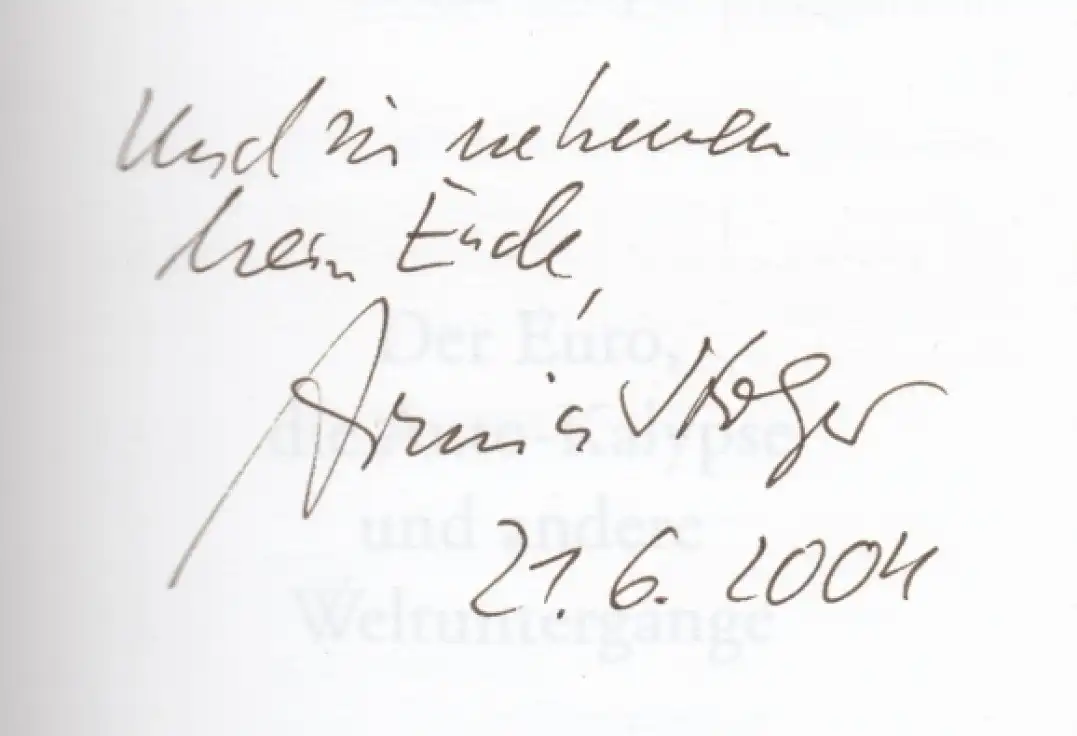 Und sie nehmen
kein Ende,
Armin
21.6.2004
Der Euro,
Kalypse
und andere
Weltuntergänge